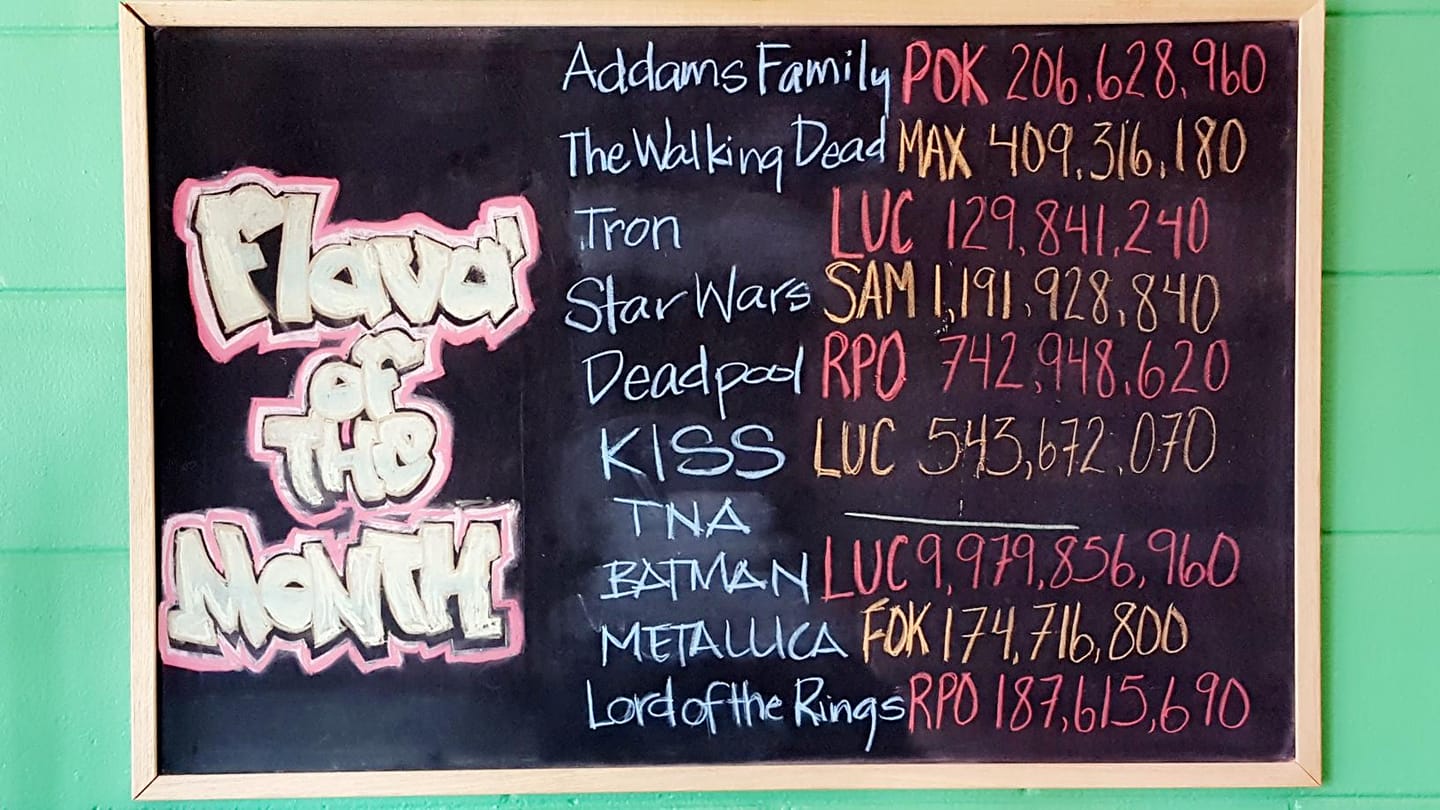 Flava'
of
THE
MONTH
Addams Family POK 206,628,960
The Walking Dead MAX 409,316,180
Tron LUC 129,841,240
Star Wars SAM 1,191,928,840
Deadpool RPO 742,948,620
KISS LUC 543,672,070
TNA
BATMAN LUC 9,979,856,960
METALLICA FOK 174,716,800
Lord of the Rings RPO 187,615,690